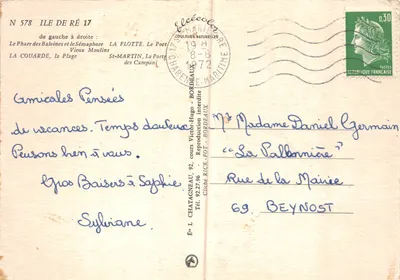 N 578 ILE DE RÉ 17
de gauche à droite :
Le Phare des Baleines et le Sémaphore LA FLOTTE. Le Port
Vieux Moulins
LA COUARDE, la Plage St-MARTIN, La Porte
des Campani
Elcécolor
CHARENTE-MARITIME
19 H
8-8
1972
0,30
REPUBLIQUE FRANÇAISE
POSTES
Amicales Pensées
de vacances. Temps douteux
Pensons bien à vous.
Gros Baisers à Sophie.
Sylviane
Ets J. CHATAGNEAU, 92, cours Victor-Hugo - BORDEAUX
92.27.96 - Reproduction interdite
Mr Madame Daniel Germain
"La Pallonnière"
Rue de la Mairie
69. BEYNOST